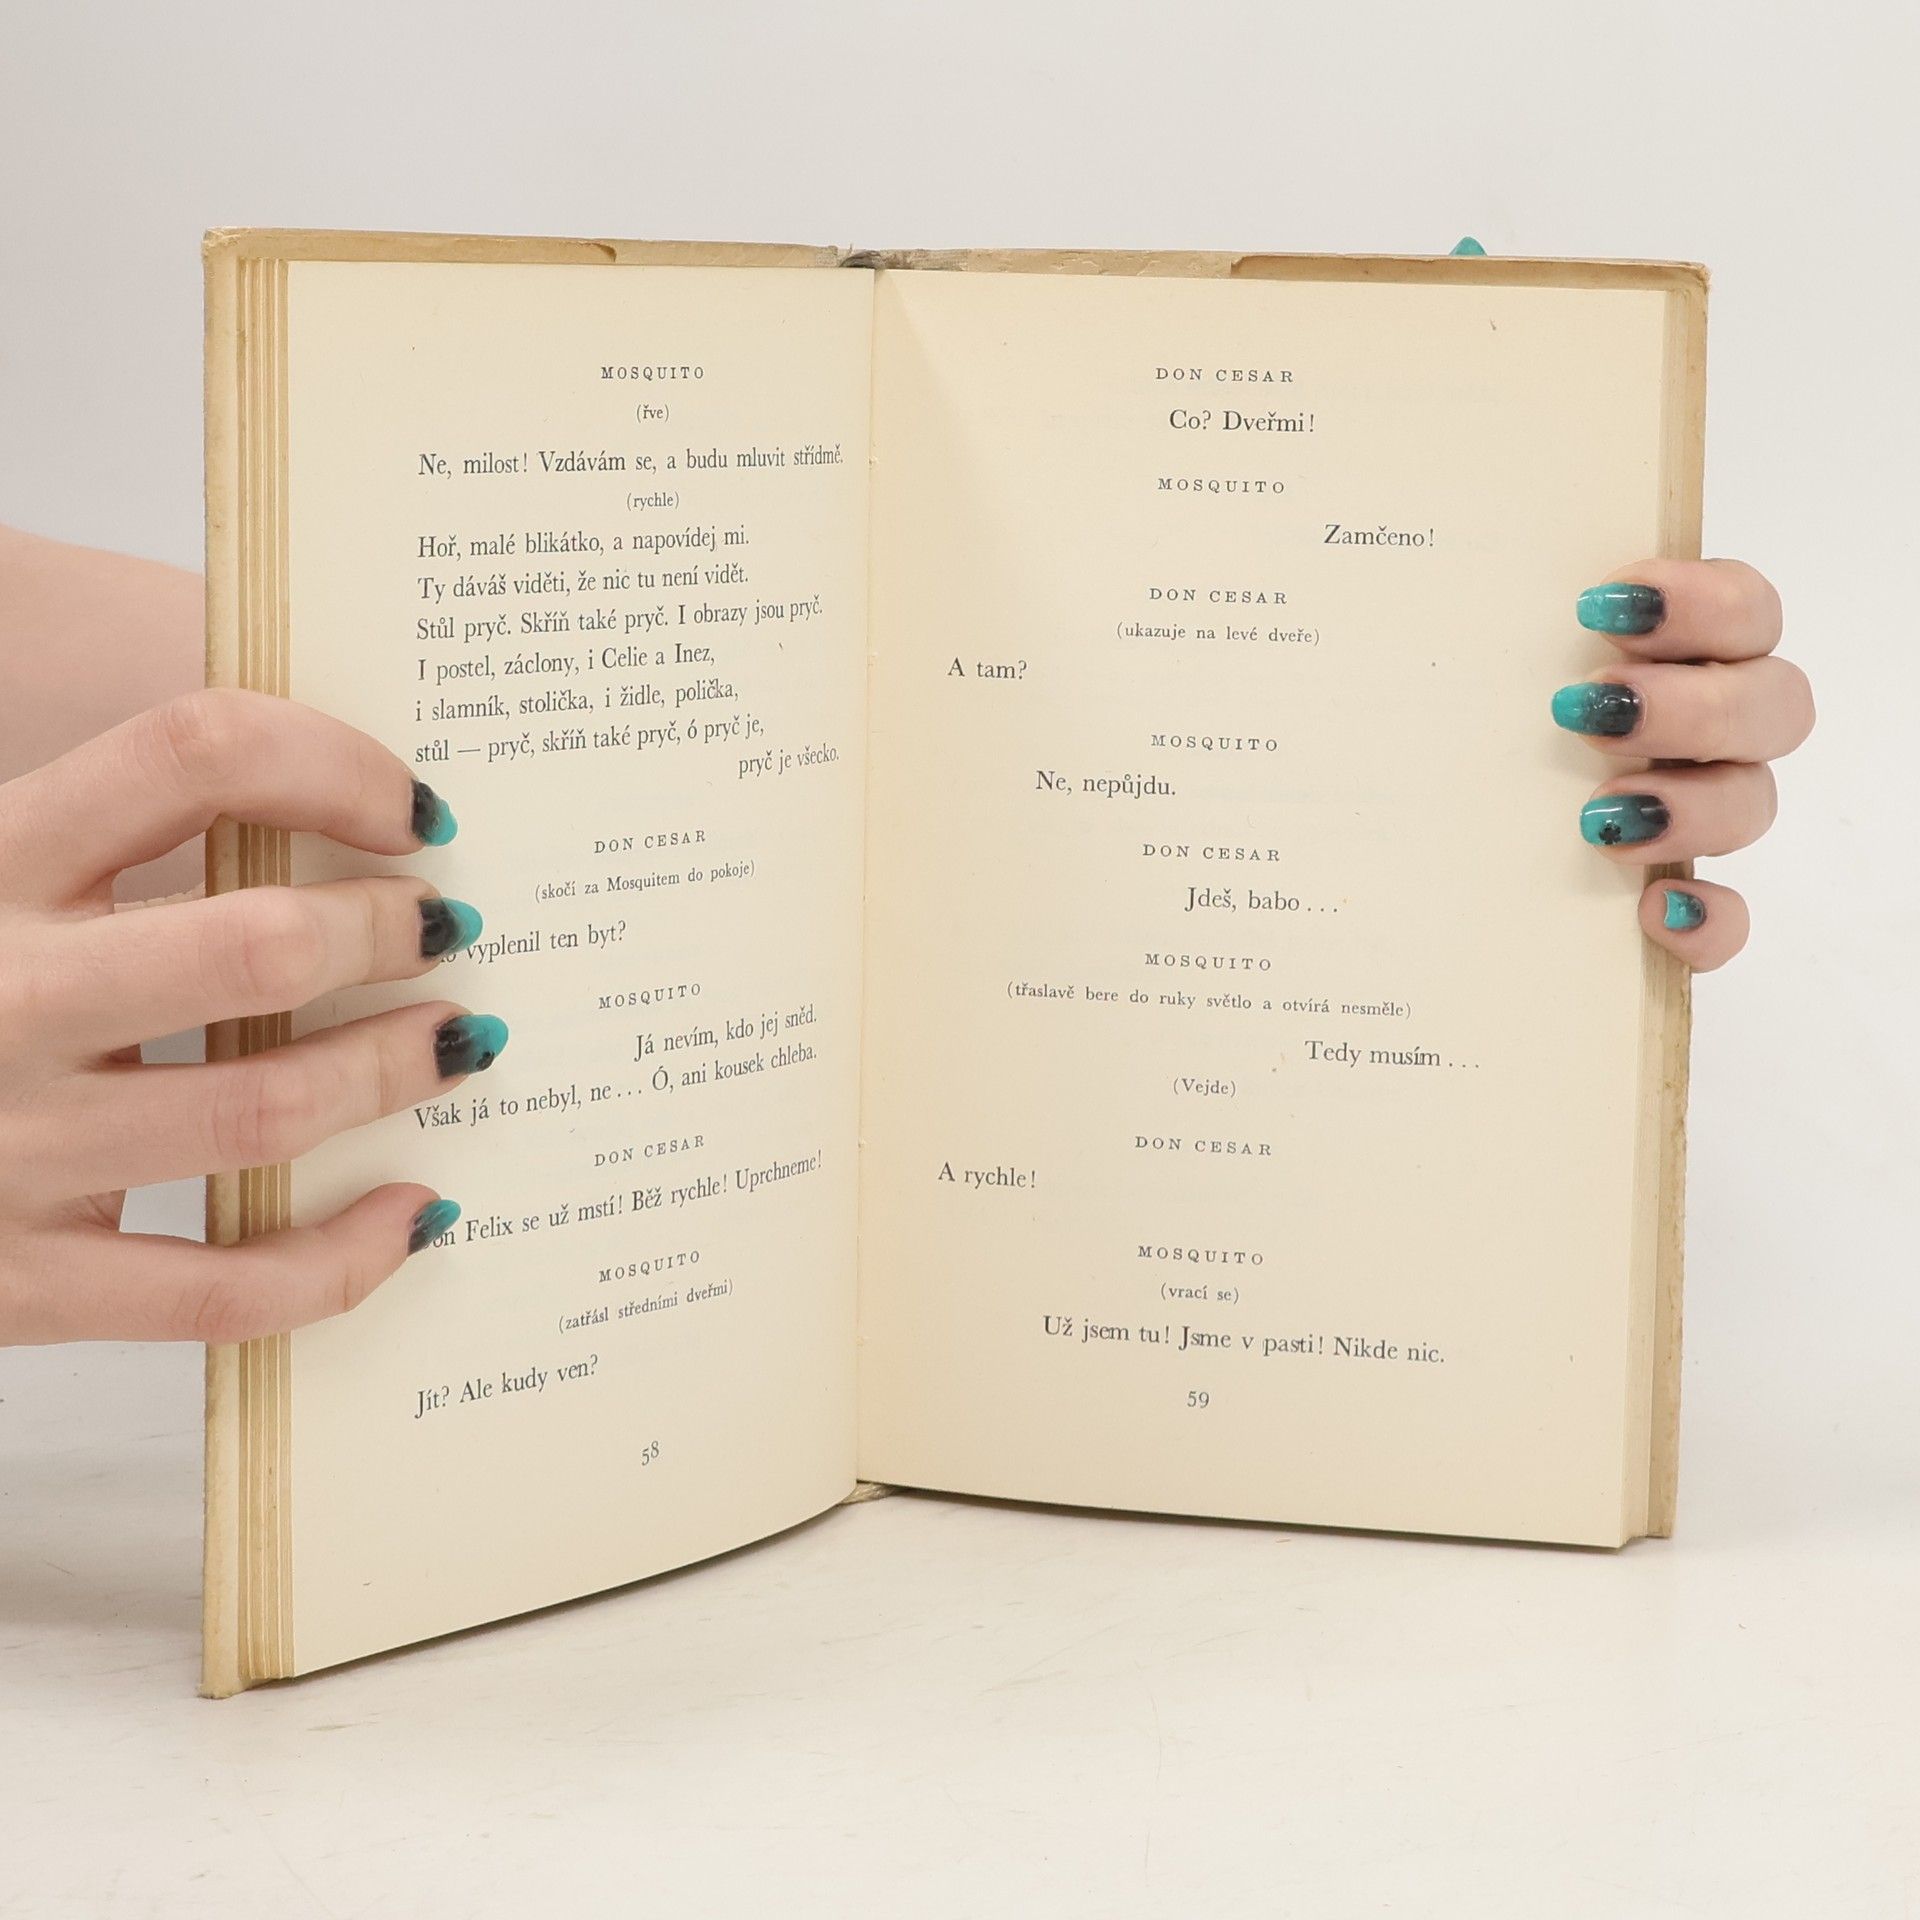 MOSQUITO
(řve)
Ne, milost! Vzdávám se, a budu mluvit střídmě.
(rychle)
Hoř, malé blikátko, a napovídej mi.
Ty dáváš viděti, že nic tu není vidět.
Stůl pryč. Skříň také pryč. I obrazy jsou pryč.
I postel, záclony, i Celie a Inez,
i slamník, stolička, i židle, polička,
stůl — pryč, skříň také pryč, ó pryč je,
pryč je všecko.
DON CESAR
(skočí za Mosquitem do pokoje)
vyplenil ten byt?
MOSQUITO
Já nevím, kdo jej sněd.
Však já to nebyl, ne... Ó, ani kousek chleba.
DON CESAR
Felix se už mstí! Běž rychle! Uprchneme!
MOSQUITO
(zatřásl středními dveřmi)
Jít? Ale kudy ven?
58
DON CESAR
Co? Dveřmi!
MOSQUITO
Zamčeno!
DON CESAR
(ukazuje na levé dveře)
A tam?
MOSQUITO
Ne, nepůjdu.
DON CESAR
Jdeš, babo...
MOSQUITO
(třaslavě bere do ruky světlo a otvírá nesměle)
Tedy musím...
(Vejde)
DON CESAR
A rychle!
MOSQUITO
(vrací se)
Už jsem tu! Jsme v pasti! Nikde nic.
59